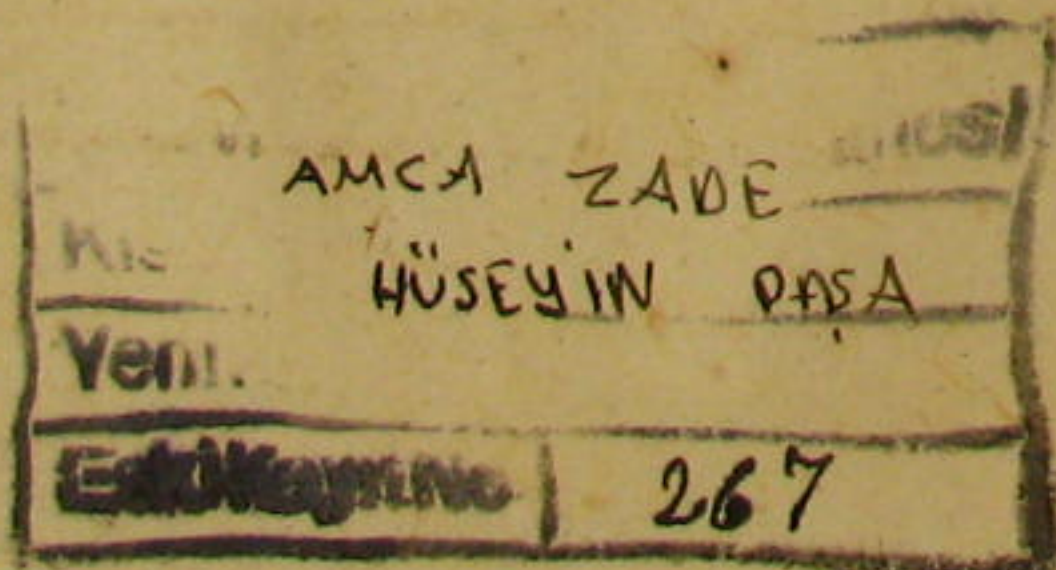 AMCA ZADE
HÜSEYİN PAŞA
Yeni
Eski Kayıt No 267